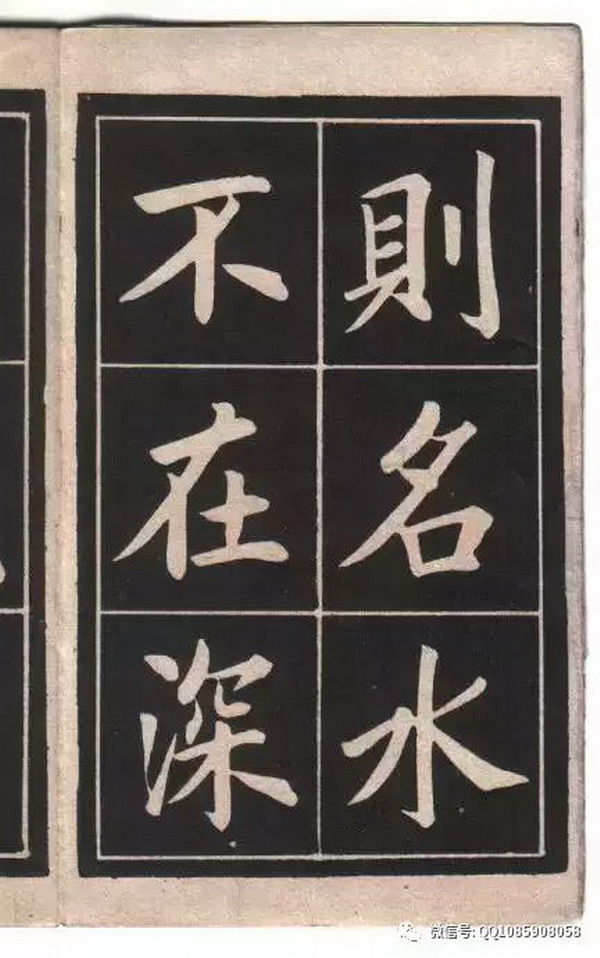 則名水
不在深
微信号: QQ1085908058